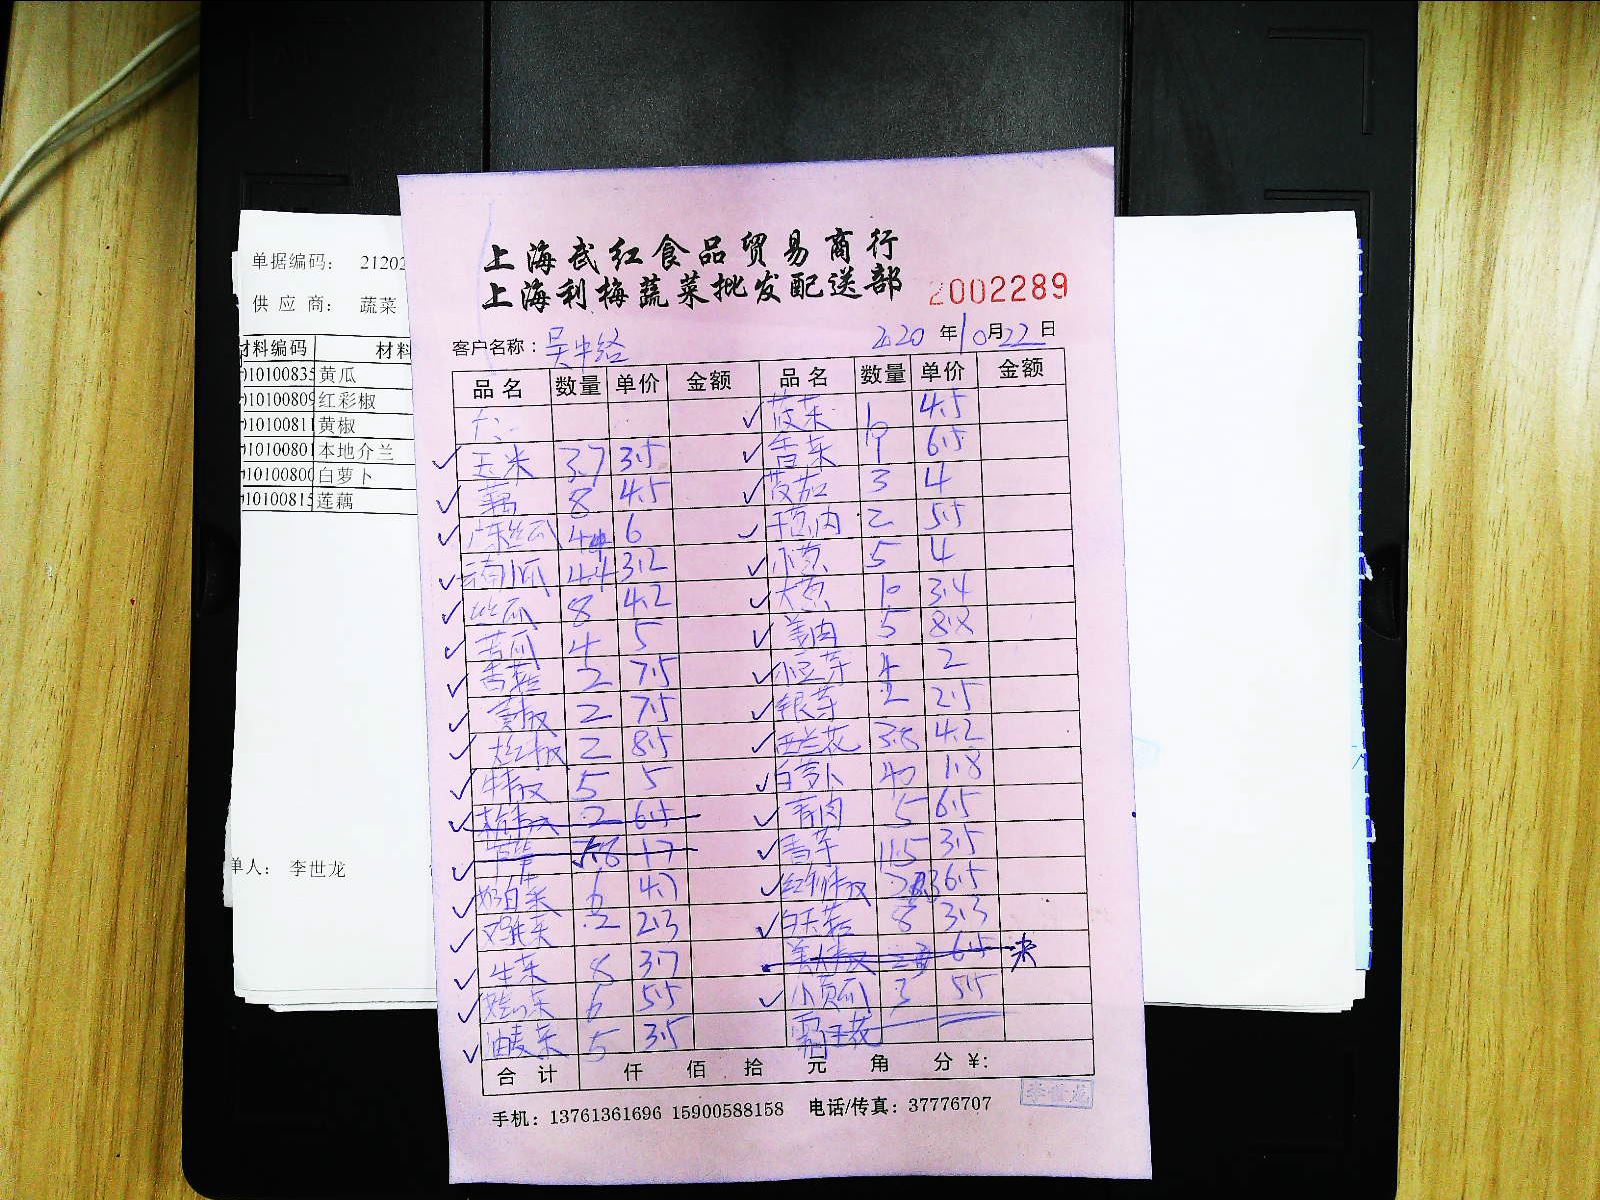 上海武红食品贸易商行
上海利梅蔬菜批发配送部
2002289
客户名称：吴中络
2020年10月22日
品名 数量 单价 金额 品名 数量 单价 金额
菠菜 4.5
玉米 3.7 3.5
6.5
藕 8 4.5
茭茄 3 4
广东丝瓜 4 6
2 5.5
云南小瓜 4.4 3.2
小葱 5 4
丝瓜 8 4.2
大葱 10 3.4
苦瓜 4 5
姜肉 5 8.8
香菇 2 7.5
小豆芽 4 2
黄椒 2 7.5
银芽 2 2.5
大红椒 2 8.5
西兰花 3.8 4.2
牛椒 5 5
白萝卜 40 1.8
2 6.5
青肉 5 6.5
17
香芋 11.5 3.5
奶白菜 6 4.7
6.5
鸡毛菜 2 2.3
8 3.3
生菜 8 3.7
美人椒 6.5
娃娃菜 6 5.5
小黄瓜 3 5.5
油麦菜 5 3.5
合计 仟 佰 拾 元 角 分 ¥:
李世龙
手机：13761361696 15900588158 电话/传真：37776707
单据编码： 21202
供应商： 蔬菜
材料编码 材料
010100835 黄瓜
010100809 红彩椒
010100811 黄椒
010100801 本地介兰
010100800 白萝卜
010100815 莲藕
单人： 李世龙